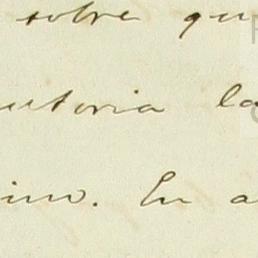 sobre qu
utoria la
ino. En a